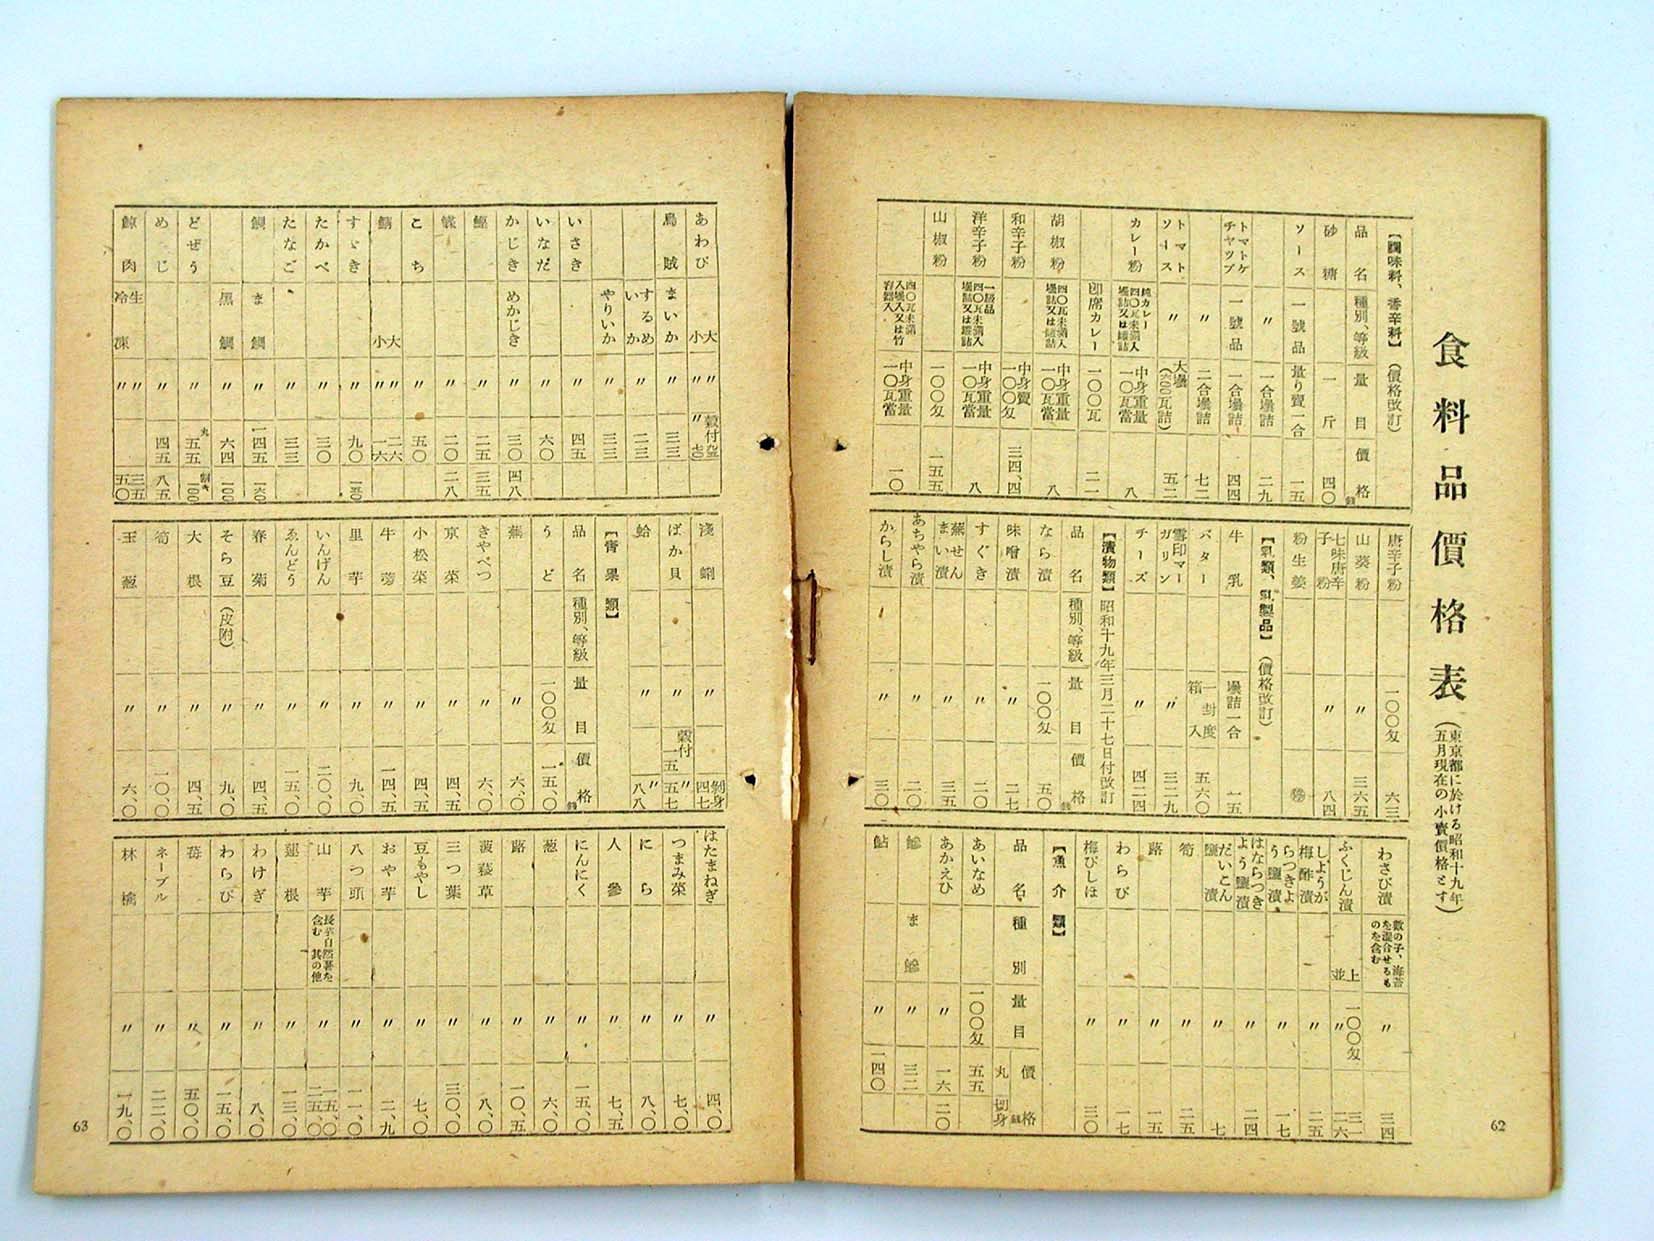 食料品價格表
(東京都に於ける昭和十九年
五月現在の小賣價格とす)
【調味料、香辛料】(價格改訂)
品名 種別、等級 量目 價格 錢
砂糖 一斤 四〇
ソース 一號品 量り賣一合 一五
〃 一合壜詰 二九
トマトケチヤツプ 一號品 一合壜詰 四四
〃 二合壜詰 七二
トマトソース 〃 大壜(六〇〇瓦詰) 五二
カレー粉 純カレー四〇瓦未滿入壜詰又は罐詰 中身重量一〇〇瓦當 八
即席カレー 一〇〇瓦 二一
胡椒粉 四〇瓦未滿入壜詰又は罐詰 中身重量一〇〇瓦當 八
和辛子粉 中身賣一〇〇匁 三四、四
洋辛子粉 一級品四〇瓦未滿入壜詰又は罐詰 中身重量一〇〇瓦當 八
山椒粉 一〇〇匁 一五五
四〇瓦未滿入壜入又は竹容器入 中身重量一〇瓦當 一〇
唐辛子粉 一〇〇匁 六三
山葵粉 〃 三六五
七味唐辛子粉 〃 八四
粉生姜
【乳類、乳製品】(價格改訂)
牛乳 壜詰一合 一五
バター 一封度箱入 五六〇
雪印マーガリン 〃 三二九
チーズ 〃 四二四
【漬物類】昭和十九年三月二十七日付改訂
品名 種別、等級 量目 價格 錢
なら漬 一〇〇匁 五〇
味噌漬 〃 二七
すぐき 二〇
蕪せんまい漬 三五
あちやら漬 〃 二〇
からし漬 〃 三〇
わさび漬 數の子、海苔を混合せるものを含む 〃 三四
ふくじん漬 上 一〇〇匁 三一
並 〃 二六
しようが梅酢漬 〃 二五
らつきよう鹽漬 〃 一七
はならつきよう鹽漬 〃 二四
だいこん鹽漬 〃 七
筍 〃 二五
蕗 〃 一五
わらび 〃 一七
梅びしほ 〃 三〇
【魚介類】
品名 種別 量目 價格 丸 切身 錢
あいなめ 一〇〇匁 五五
あかえひ 〃 一六 二〇
鰺 ま鰺 〃 三二
鮎 〃 一四〇
62
あわび 大 〃 殼付 九五
小 〃 〃 七〇
烏賊 まいか 〃 三三
するめいか 〃 二三
やりいか 〃 三三
いさき 〃 四五
いなだ 〃 六〇
かじき めかじき 〃 三〇 四八
鰹 〃 二五 三五
鰈 〃 二〇 二八
こち 〃 五〇
鯖 大 〃 二六
小 〃 一六
すゞき 〃 九〇 一五〇
たかべ 〃 三〇
たなご 〃 三三
鯛 ま鯛 〃 一四五 一六〇
黒鯛 〃 六四 一〇〇
どぜう 〃 丸 五五 割き 一〇〇
めじ 〃 四五 八五
鯨肉 生 〃 三五
冷凍 〃 五〇
淺蜊 〃 剝身 四七
ばか貝 〃 殼付 一五 〃 五七
蛤 〃 〃 八八
【青果類】
品名 種別、等級 量目 價格 錢
うど 一〇〇匁 一五、〇
蕪 〃 六、〇
きやべつ 〃 六、〇
京菜 〃 四、五
小松菜 〃 四、五
牛蒡 〃 一四、五
里芋 〃 九、〇
いんげん 〃 二〇、〇
ゑんどう 〃 一五、〇
春菊 〃 四、五
そら豆(皮附) 〃 九、〇
大根 〃 四、五
筍 〃 一〇、〇
玉葱 〃 六、〇
はたまねぎ 〃 四、〇
つまみ菜 〃 七、〇
にら 〃 八、〇
人參 〃 七、五
にんにく 〃 一五、〇
葱 〃 六、〇
蕗 〃 一〇、五
菠薐草 〃 八、〇
三つ葉 〃 三〇、〇
豆もやし 〃 七、〇
おや芋 〃 二、九
八つ頭 〃 一一、〇
山芋 長芋自然薯を含む 其の他 〃 一五、〇 二五、〇
蓮根 〃 一三、〇
わけぎ 〃 八、〇
わらび 〃 一五、〇
苺 〃 五〇、〇
ネーブル 〃 二二、〇
林檎 〃 一九、〇
63